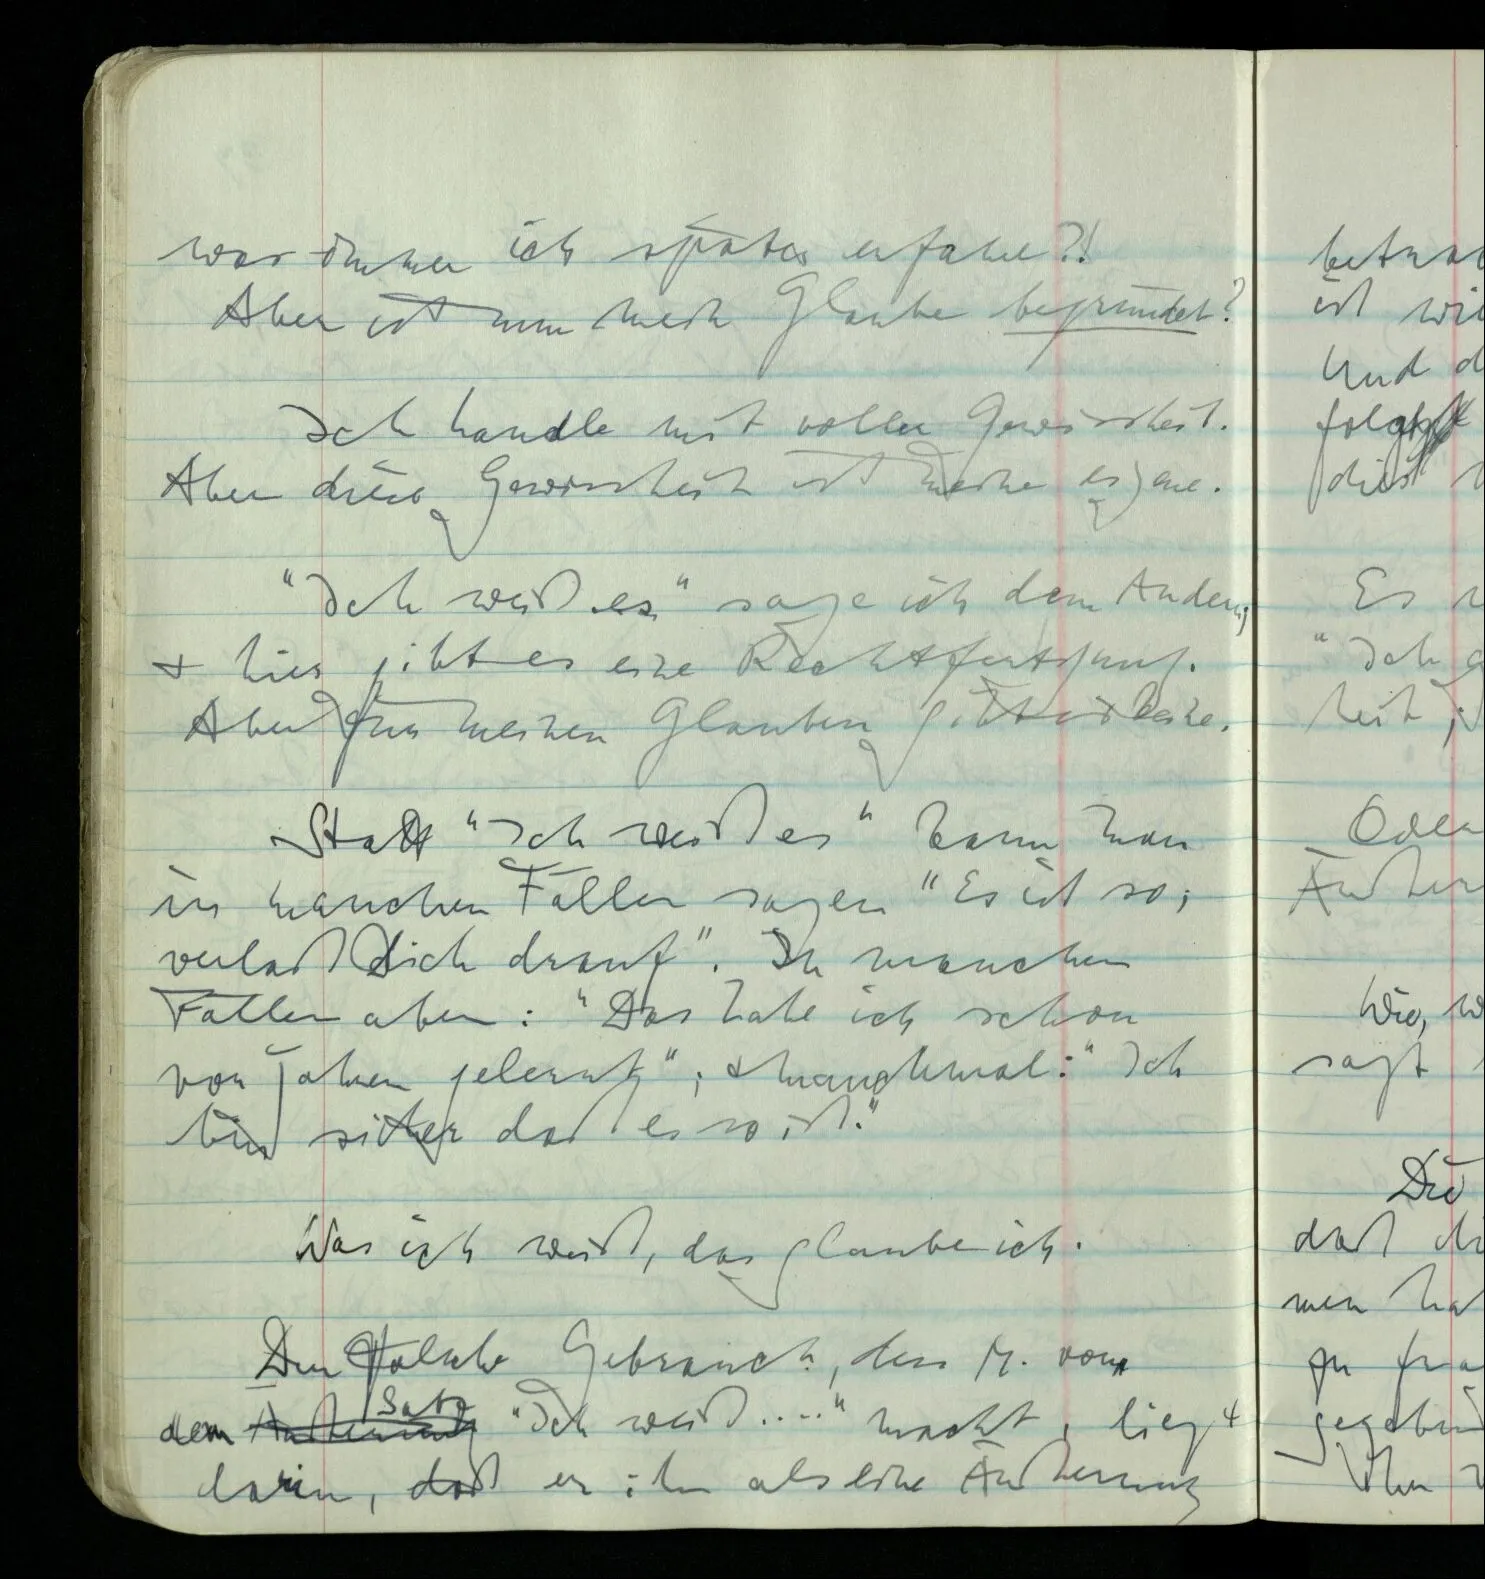 was immer ich später erfahre?!
Aber ist nun mein Glaube begründet?
Ich handle mit voller Gewissheit.
Aber diese Gewissheit ist meine eigene.
"Ich weiß es" sage ich dem Andern;
+ hier gibt es eine Rechtfertigung.
Aber für meinen Glauben gibt es keine.
Statt "Ich weiß es" kann man
in manchen Fällen sagen "Es ist so;
verlaß Dich drauf". In manchen
Fällen aber: "Das habe ich schon
vor Jahren gelernt"; + manchmal: "Ich
bin sicher daß es so ist."
Was ich weiß, das glaube ich.
Der falsche Gebrauch, den M. vom
dem Äußerung Satz "Ich weiß...." macht, liegt
darin, daß er ihn als eine Äußerung
ist
Und
folgt
dies
Es
"Ich
heit;
Oder
Wie,
sagt
Die
daß
men
zu